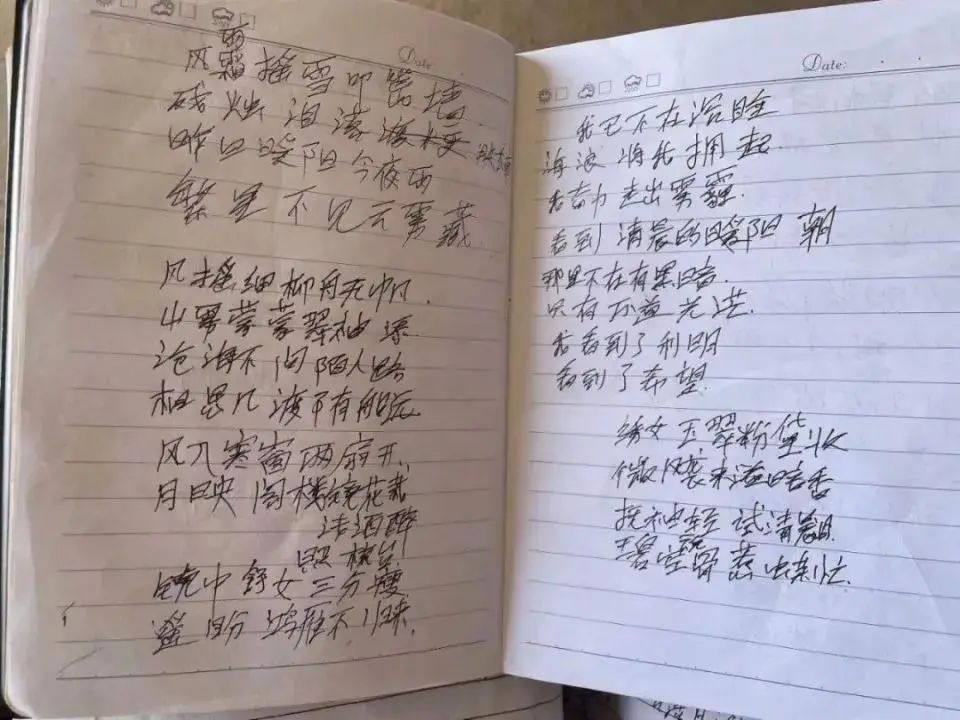 Date:
雨
风霜摇雪叩窗墙
残烛泪滴
昨日暖阳今夜雨
繁星不见云雾藏
风摇细柳舟无帆
山雾蒙蒙翠袖
沧海不问陌人路
相思几渡不有船
风入寒窗两扇开
月映阁楼绕花
酒醉
照梳
镜中舒女三分瘦
盼鸿雁不归来
Date:
我已不在沉睡
海浪将我拥起
我奋力走出雾霾
看到清晨的暖阳 朝
那里不在有黑暗
只有万道光芒
我看到了利明
看到了希望
绣女玉翠粉黛妆
微风袭来海暗香
挽袖轻试清晨